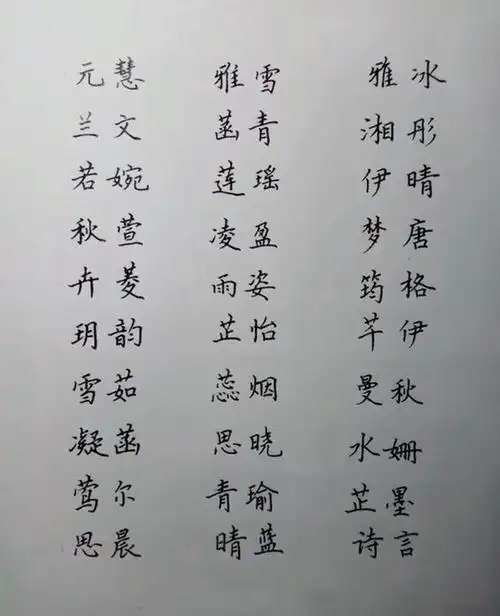 元慧 雅雪 雅冰
兰文 菡青 湘彤
若婉 莲瑶 伊晴
秋萱 凌盈 梦唐
卉菱 雨姿 筠格
玥韵 芷怡 芊伊
雪茹 蕊烟 曼秋
凝菡 思晓 水姗
莺尔 青瑜 芷墨
思晨 晴蓝 诗言